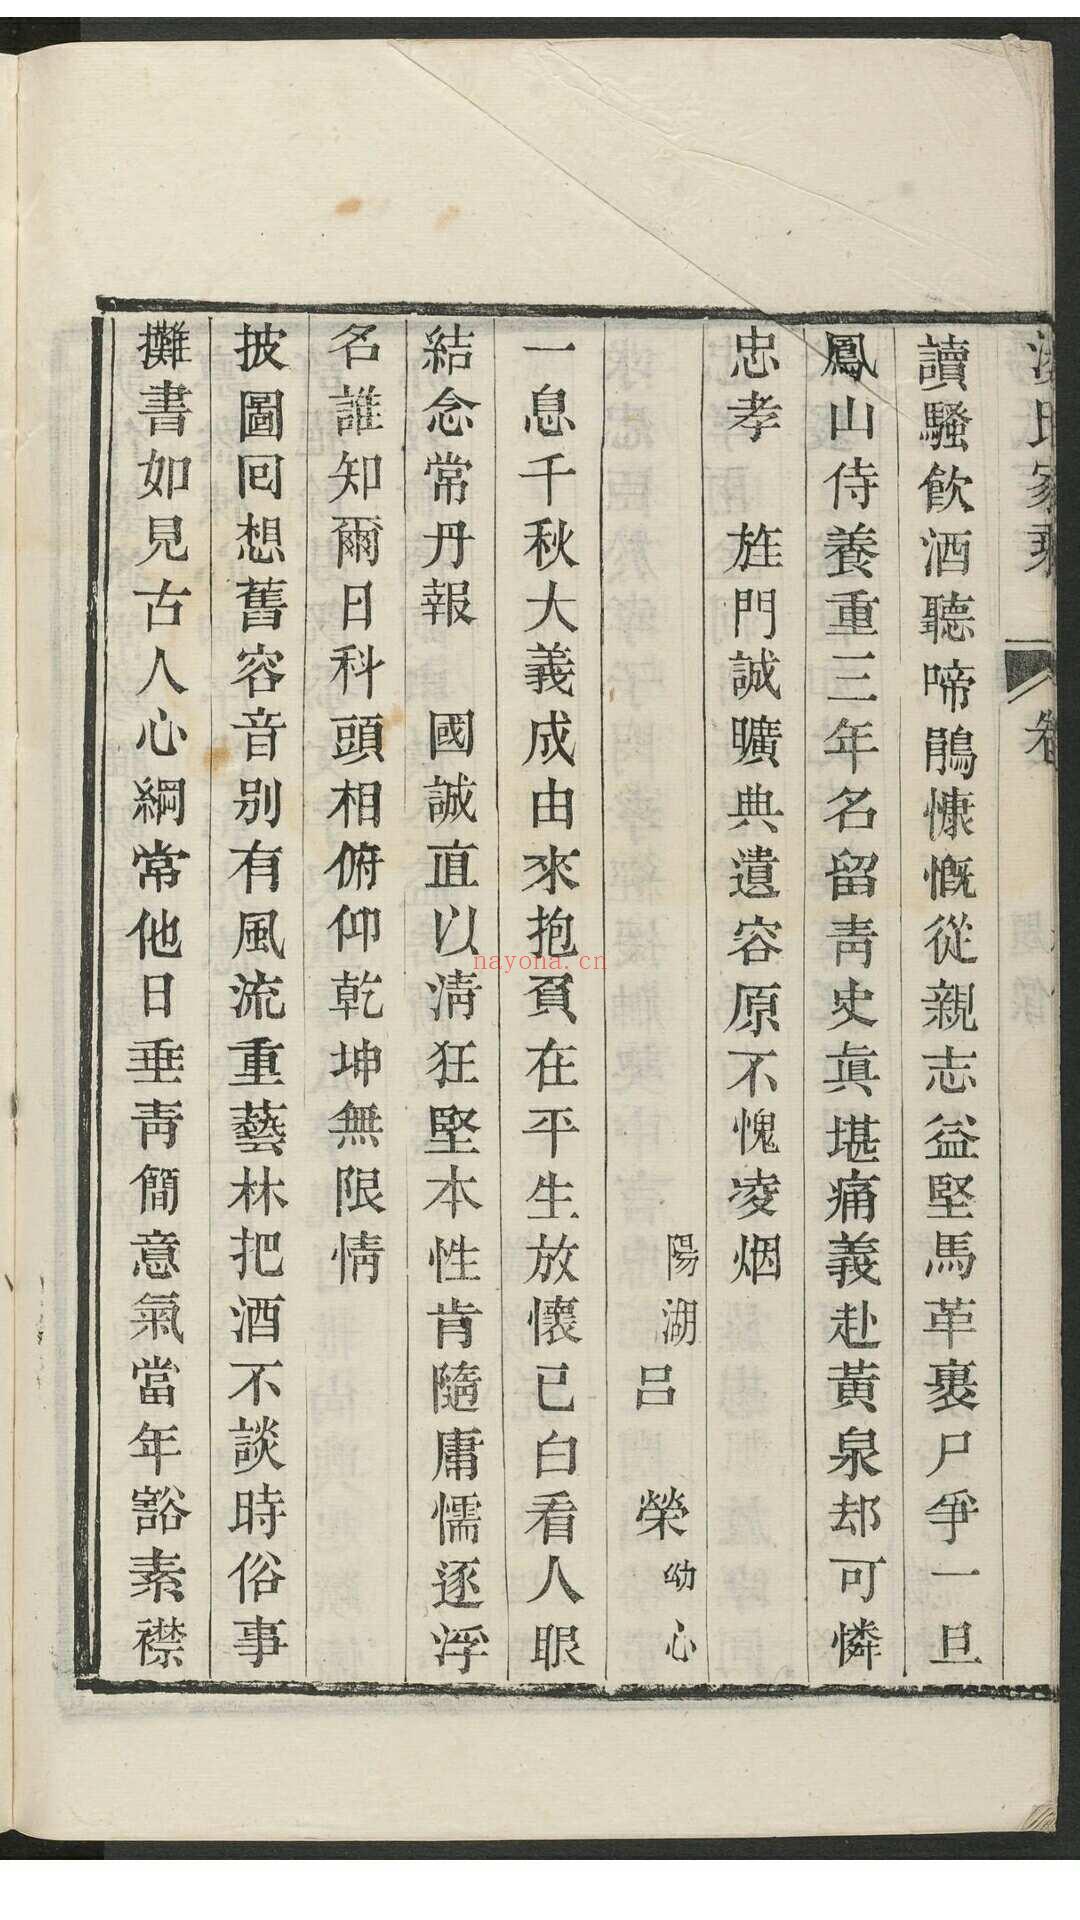 氏家乘
卷
讀騷飲酒聽啼鵑慷慨從親志益堅馬革裹尸爭一旦
鳳山侍養重三年名留靑史眞堪痛義赴黃泉却可憐
忠孝　旌門誠曠典遺容原不愧凌烟
陽湖呂　榮幼心
一息千秋大義成由來抱負在平生放懷已白看人眼
結念常丹報　國誠直以淸狂堅本性肯隨庸懦逐浮
名誰知爾日科頭相俯仰乾坤無限情
披圖回想舊容音別有風流重藝林把酒不談時俗事
攤書如見古人心綱常他日垂靑簡意氣當年豁素襟
nayona.cn